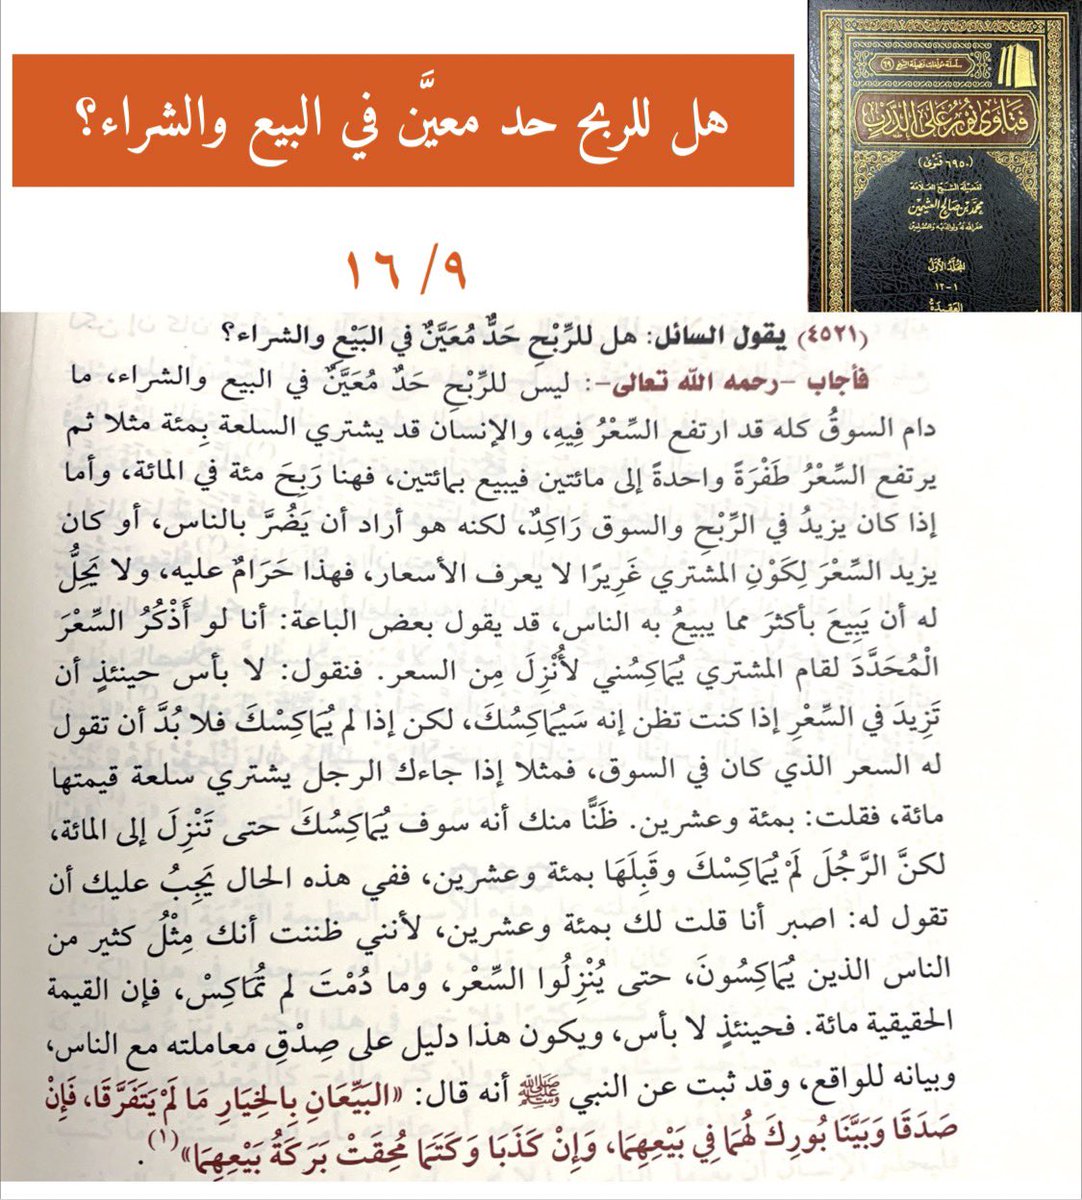 هل للربح حد معيَّن في البيع والشراء؟
٩/ ١٦
سلسلة مؤلفات فضيلة الشيخ (٦٩)
فتاوى نور على الدرب
(٦٩٥٠ فتوى)
لفضيلة الشيخ العلامة
محمد بن صالح العثيمين
غفر الله له ولوالديه وللمسلمين
المجلد الأول
١-١٢
العقيدة
(٤٥٢١) يقول السائل: هل للرِّبْحِ حَدٌّ مُعَيَّنٌ في البَيْعِ والشراء؟
فأجاب -رحمه الله تعالى-: ليس للرِّبْحِ حَدٌ مُعَيَّنٌ في البيع والشراء، ما
دام السوقُ كله قد ارتفع السِّعْرُ فِيهِ، والإنسان قد يشتري السلعة بِمئة مثلا ثم
يرتفع السِّعْرُ طَفْرَةً واحدةً إلى مائتين فيبيع بمائتين، فهنا رَبِحَ مئة في المائة، وأما
إذا كان يزيدُ في الرِّبْحِ والسوق رَاكِدٌ، لكنه هو أراد أن يَضُرَّ بالناس، أو كان
يزيد السِّعْرَ لِكَوْنِ المشتري غَرِيرًا لا يعرف الأسعار، فهذا حَرَامٌ عليه، ولا يَحِلُّ
له أن يَبِيعَ بأكثرَ مما يبيعُ به الناس، قد يقول بعض الباعة: أنا لو أَذْكُرُ السِّعْرَ
الْمُحَدَّدَ لقام المشتري يُمَاكِسُني لأُنْزِلَ مِن السعر. فنقول: لا بأس حينئذٍ أن
تَزِيدَ في السِّعْرِ إذا كنت تظن إنه سَيُمَاكِسُكَ، لكن إذا لم يُمَاكِسْكَ فلا بُدَّ أن تقول
له السعر الذي كان في السوق، فمثلا إذا جاءك الرجل يشتري سلعة قيمتها
مائة، فقلت: بمئة وعشرين. ظَنًّا منك أنه سوف يُمَاكِسُكَ حتى تَنْزِلَ إلى المائة،
لكنَّ الرَّجُلَ لَمْ يُمَاكِسْكَ وقَبِلَهَا بمئة وعشرين، ففي هذه الحال يَجِبُ عليك أن
تقول له: اصبر أنا قلت لك بمئة وعشرين، لأنني ظننت أنك مِثْلُ كثير من
الناس الذين يُمَاكِسُونَ، حتى يُنْزِلُوا السِّعْر، وما دُمْتَ لم تُمَاكِسْ، فإن القيمة
الحقيقية مائة. فحينئذٍ لا بأس، ويكون هذا دليل على صِدْقِ معاملته مع الناس،
وبيانه للواقع، وقد ثبت عن النبي ﷺ أنه قال: «البَيِّعَانِ بِالخِيَارِ مَا لَمْ يَتَفَرَّقَا، فَإِنْ
صَدَقَا وَبَيَّنَا بُورِكَ لَهُمَا فِي بَيْعِهِمَا، وَإِنْ كَذَبَا وَكَتَمَا مُحِقَتْ بَرَكَةُ بَيْعِهِمَا»(١).